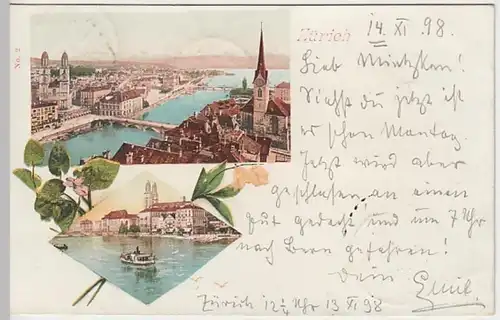 No. 2
Zürich
14. XI 98.
Lieb Mintzken!
Siehst du jetzt ist
es schon Montag.
Jetzt wird aber
geschlafen an einen
gut gedacht und um 7 Uhr
nach Bern gefahren!
Dein Emil
Zürich 12¼ Uhr 13 XI 98